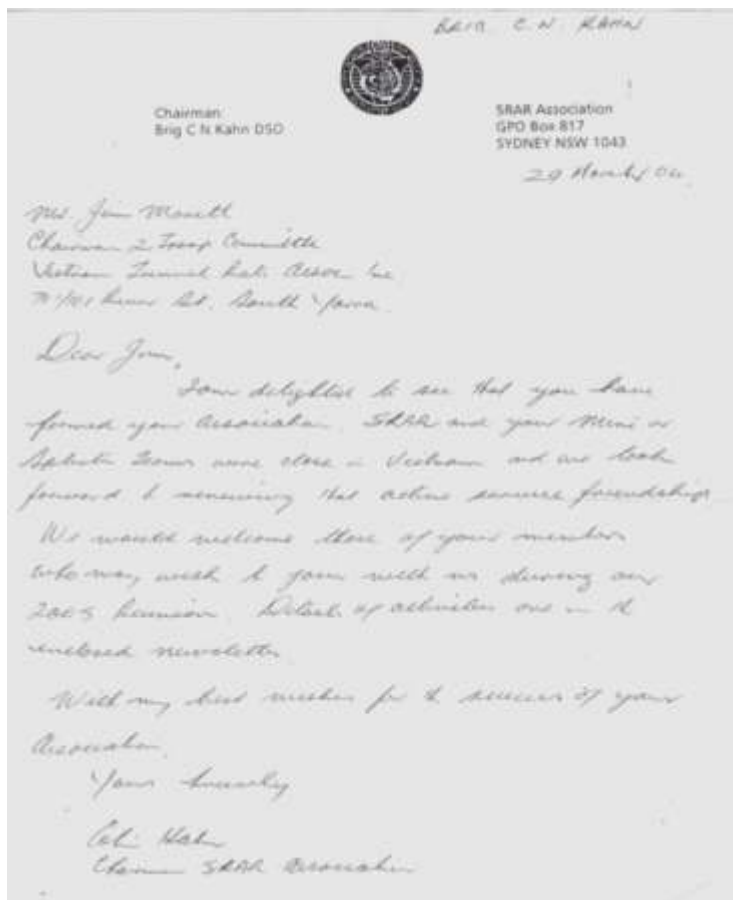 BRIG. C. N. KAHN
Chairman:
Brig C N Kahn DSO
5RAR Association
GPO Box 817
SYDNEY NSW 1043
29 04
Mr. Jim Marett
Chairman 2 Troop Committee
Vietnam Tunnel Rats Assoc. Inc.
St. South Yarra
Dear Jim,
I am delighted to see that you have
formed your Association. 5RAR and your Mini or
Splinter Teams were close in Vietnam and we look
forward to renewing that active service friendship.
We would welcome those of your members
who may wish to join with us during our
2005 Reunion. Details of activities are in the
enclosed newsletter.
With my best wishes for the success of your
Association.
Yours sincerely
Colin Kahn
Chairman 5RAR Association